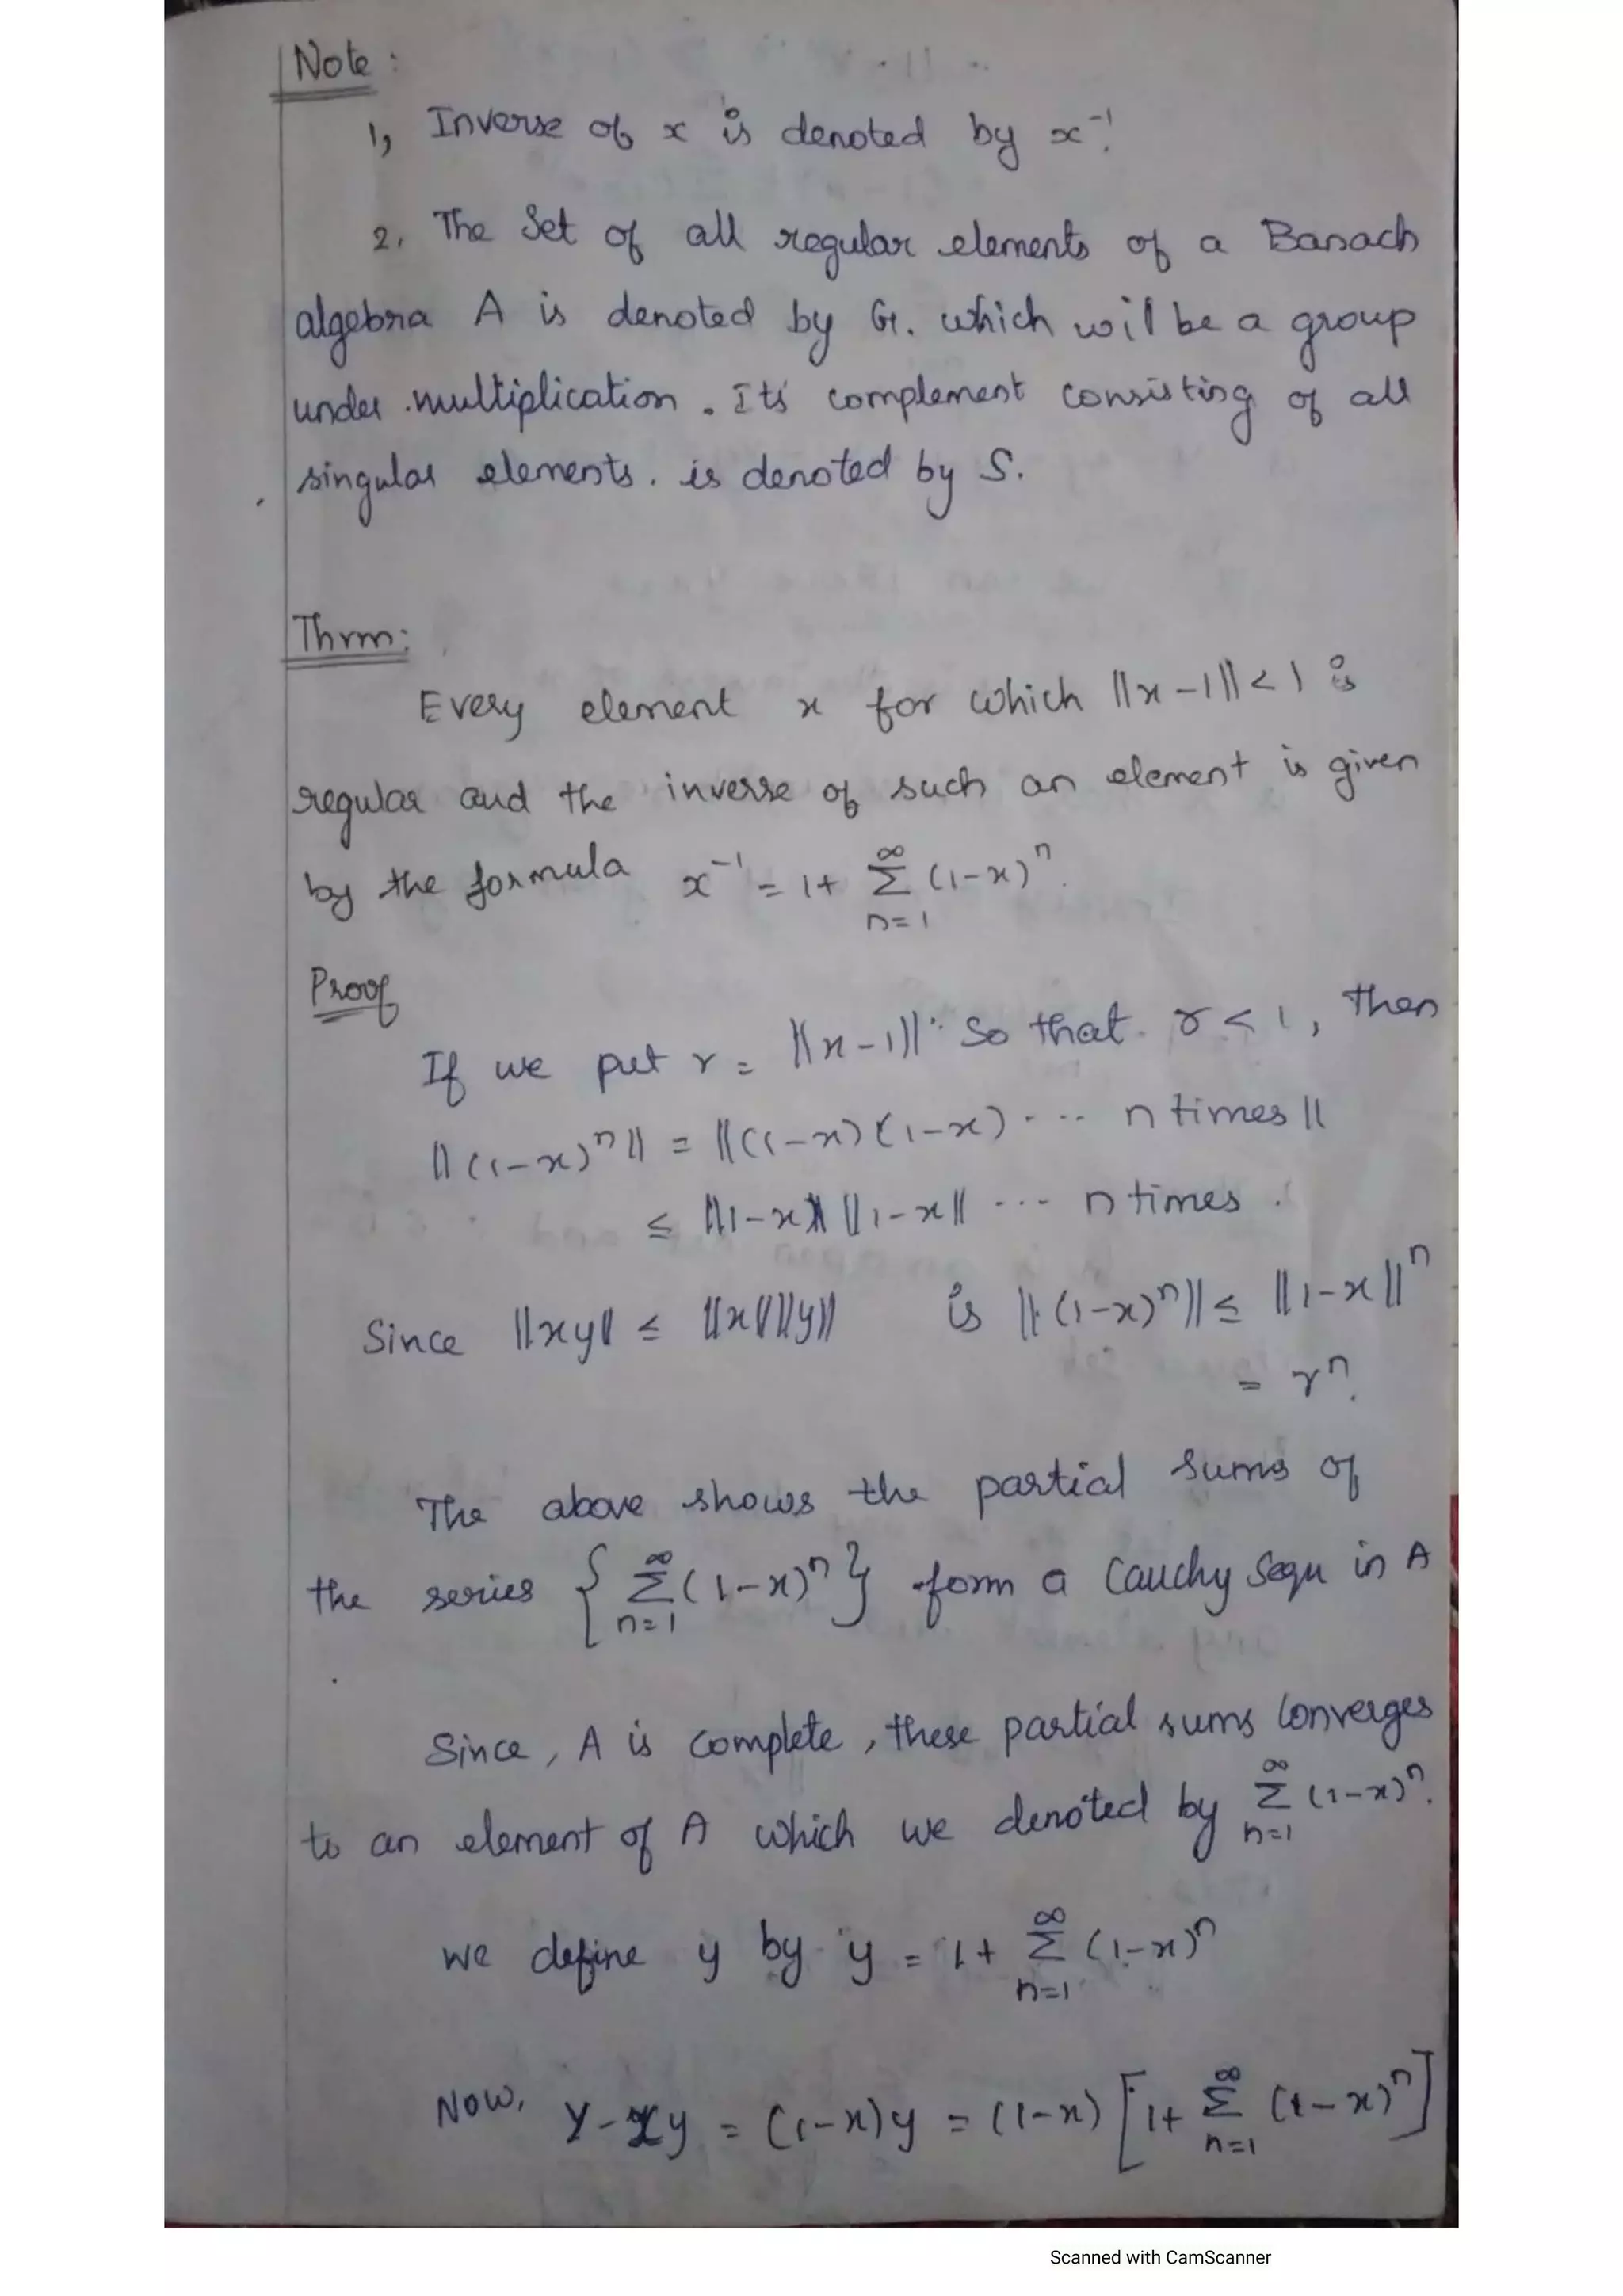 Note :
1, Inverse of x is denoted by x⁻¹.
2. The Set of all regular elements of a Banach
algebra A is denoted by G. which wil be a group
under multiplication. Its complement consisting of all
singular elements. is denoted by S.
Thrm:
Every element x for which ||x-1|| < 1 is
regular and the inverse of such an element is given
by the formula x⁻¹ = 1+ ∞Σn=1 (1-x)ⁿ.
Proof
If we put r = ||x-1|| So that r < 1, then
||(1-x)ⁿ|| = ||(1-x)(1-x) ... n times||
≤ ||1-x|| ||1-x|| ... n times.
Since ||xy|| ≤ ||x|| ||y|| is ||(1-x)ⁿ|| ≤ ||1-x||ⁿ
= rⁿ.
The above shows the partial sums of
the series { ∞Σn=1 (1-x)ⁿ } form a Cauchy Sequ in A
Since, A is complete, these partial sums Converges
to an element of A which we denoted by ∞Σn=1 (1-x)ⁿ.
we define y by y = 1+ ∞Σn=1 (1-x)ⁿ
Now, y-xy = (1-x)y = (1-x) [1+ ∞Σn=1 (1-x)ⁿ]
Scanned with CamScanner